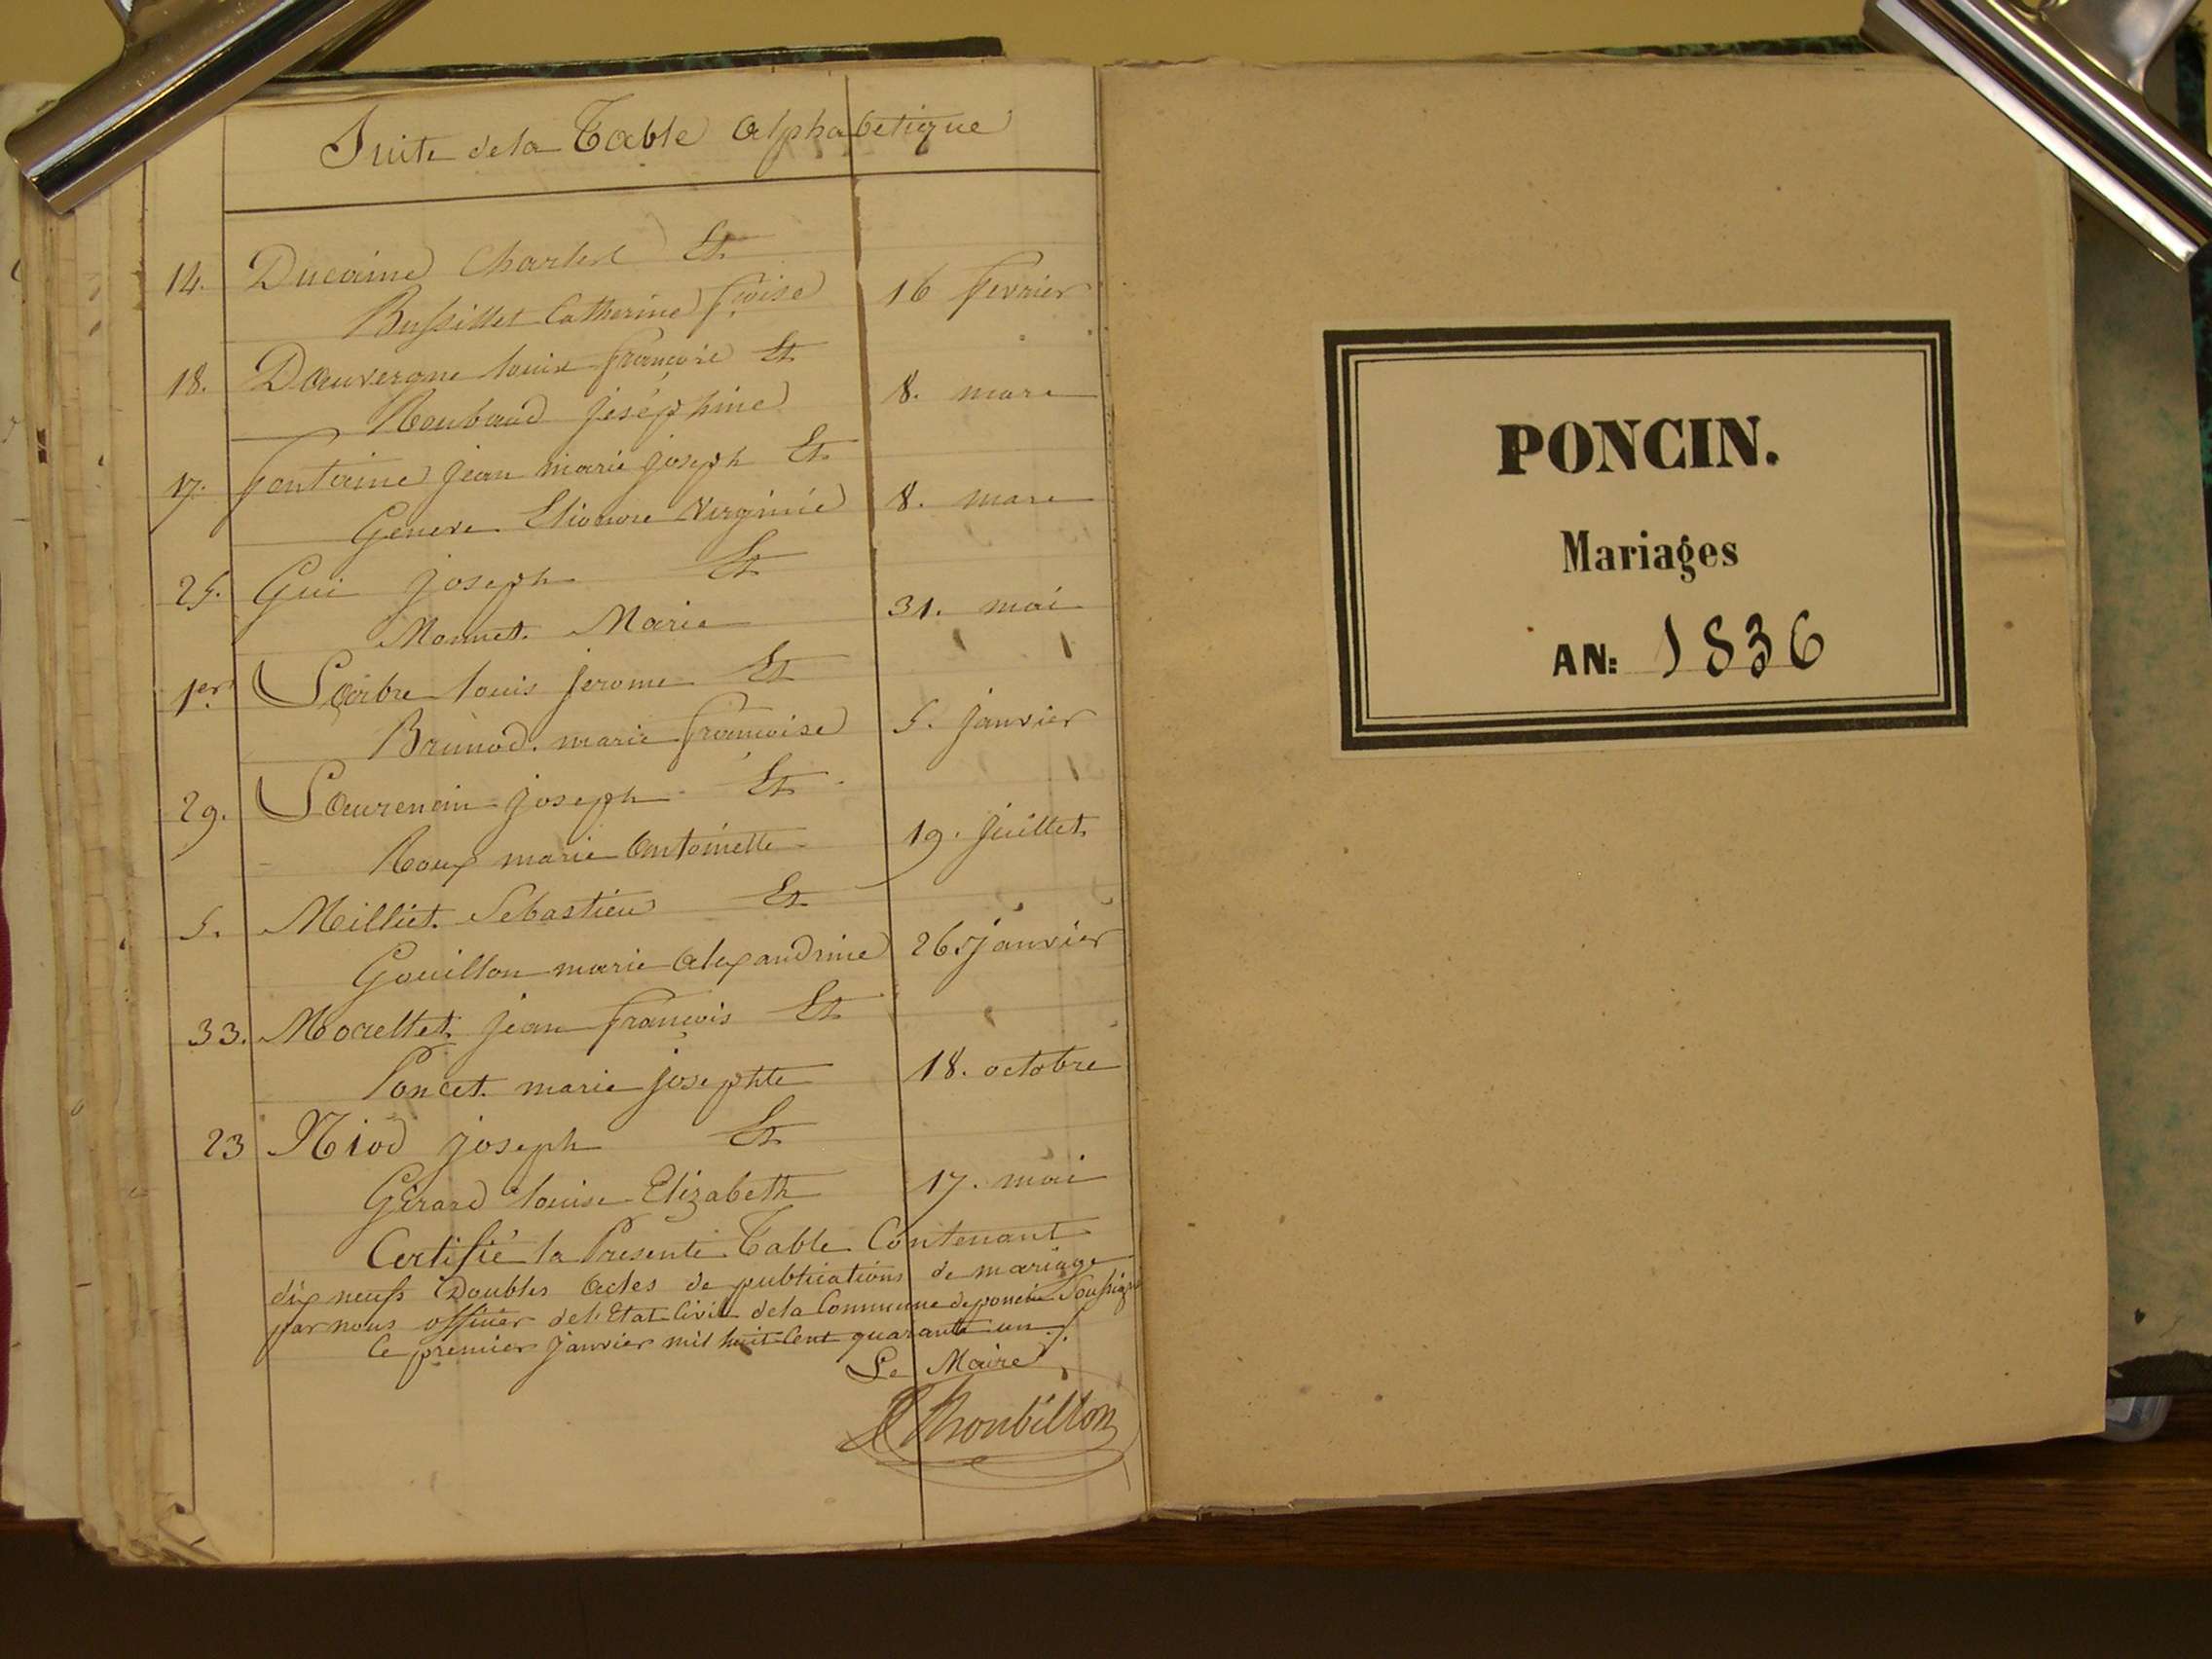 Suite de la Table Alphabetique
14. Ducaine Charles Et
Bussillet Catherine fçoise 16 fevrier
18. Dauvergne louis françois Et
Roubaud joséphine 8. mars
17. fontaine jean marie joseph Et
Geneve Virginie 8. mars
25. Gui joseph Et
Monnet Marie 31. mai
1er Larbre louis jerome Et
Brunod. marie françoise 5. janvier
29. Laurencin joseph Et
Roux marie Antoinette 19. juillet
5. Milliet Sebastien Et
Gouillon marie Alexandrine 26 janvier
33. Morellet jean françois Et
Poncet marie josephte 18. octobre
23 Niod joseph Et
Girard louise Elizabeth 17. mai
Certifié la Presente Table Contenant
dix neufs Doubles Actes de publications de mariage
par nous officier de l'Etat Civil de la Commune de poncin Soussigné
le premier janvier mil huit Cent quarante un
Le Maire
PONCIN.
Mariages
AN: 1836